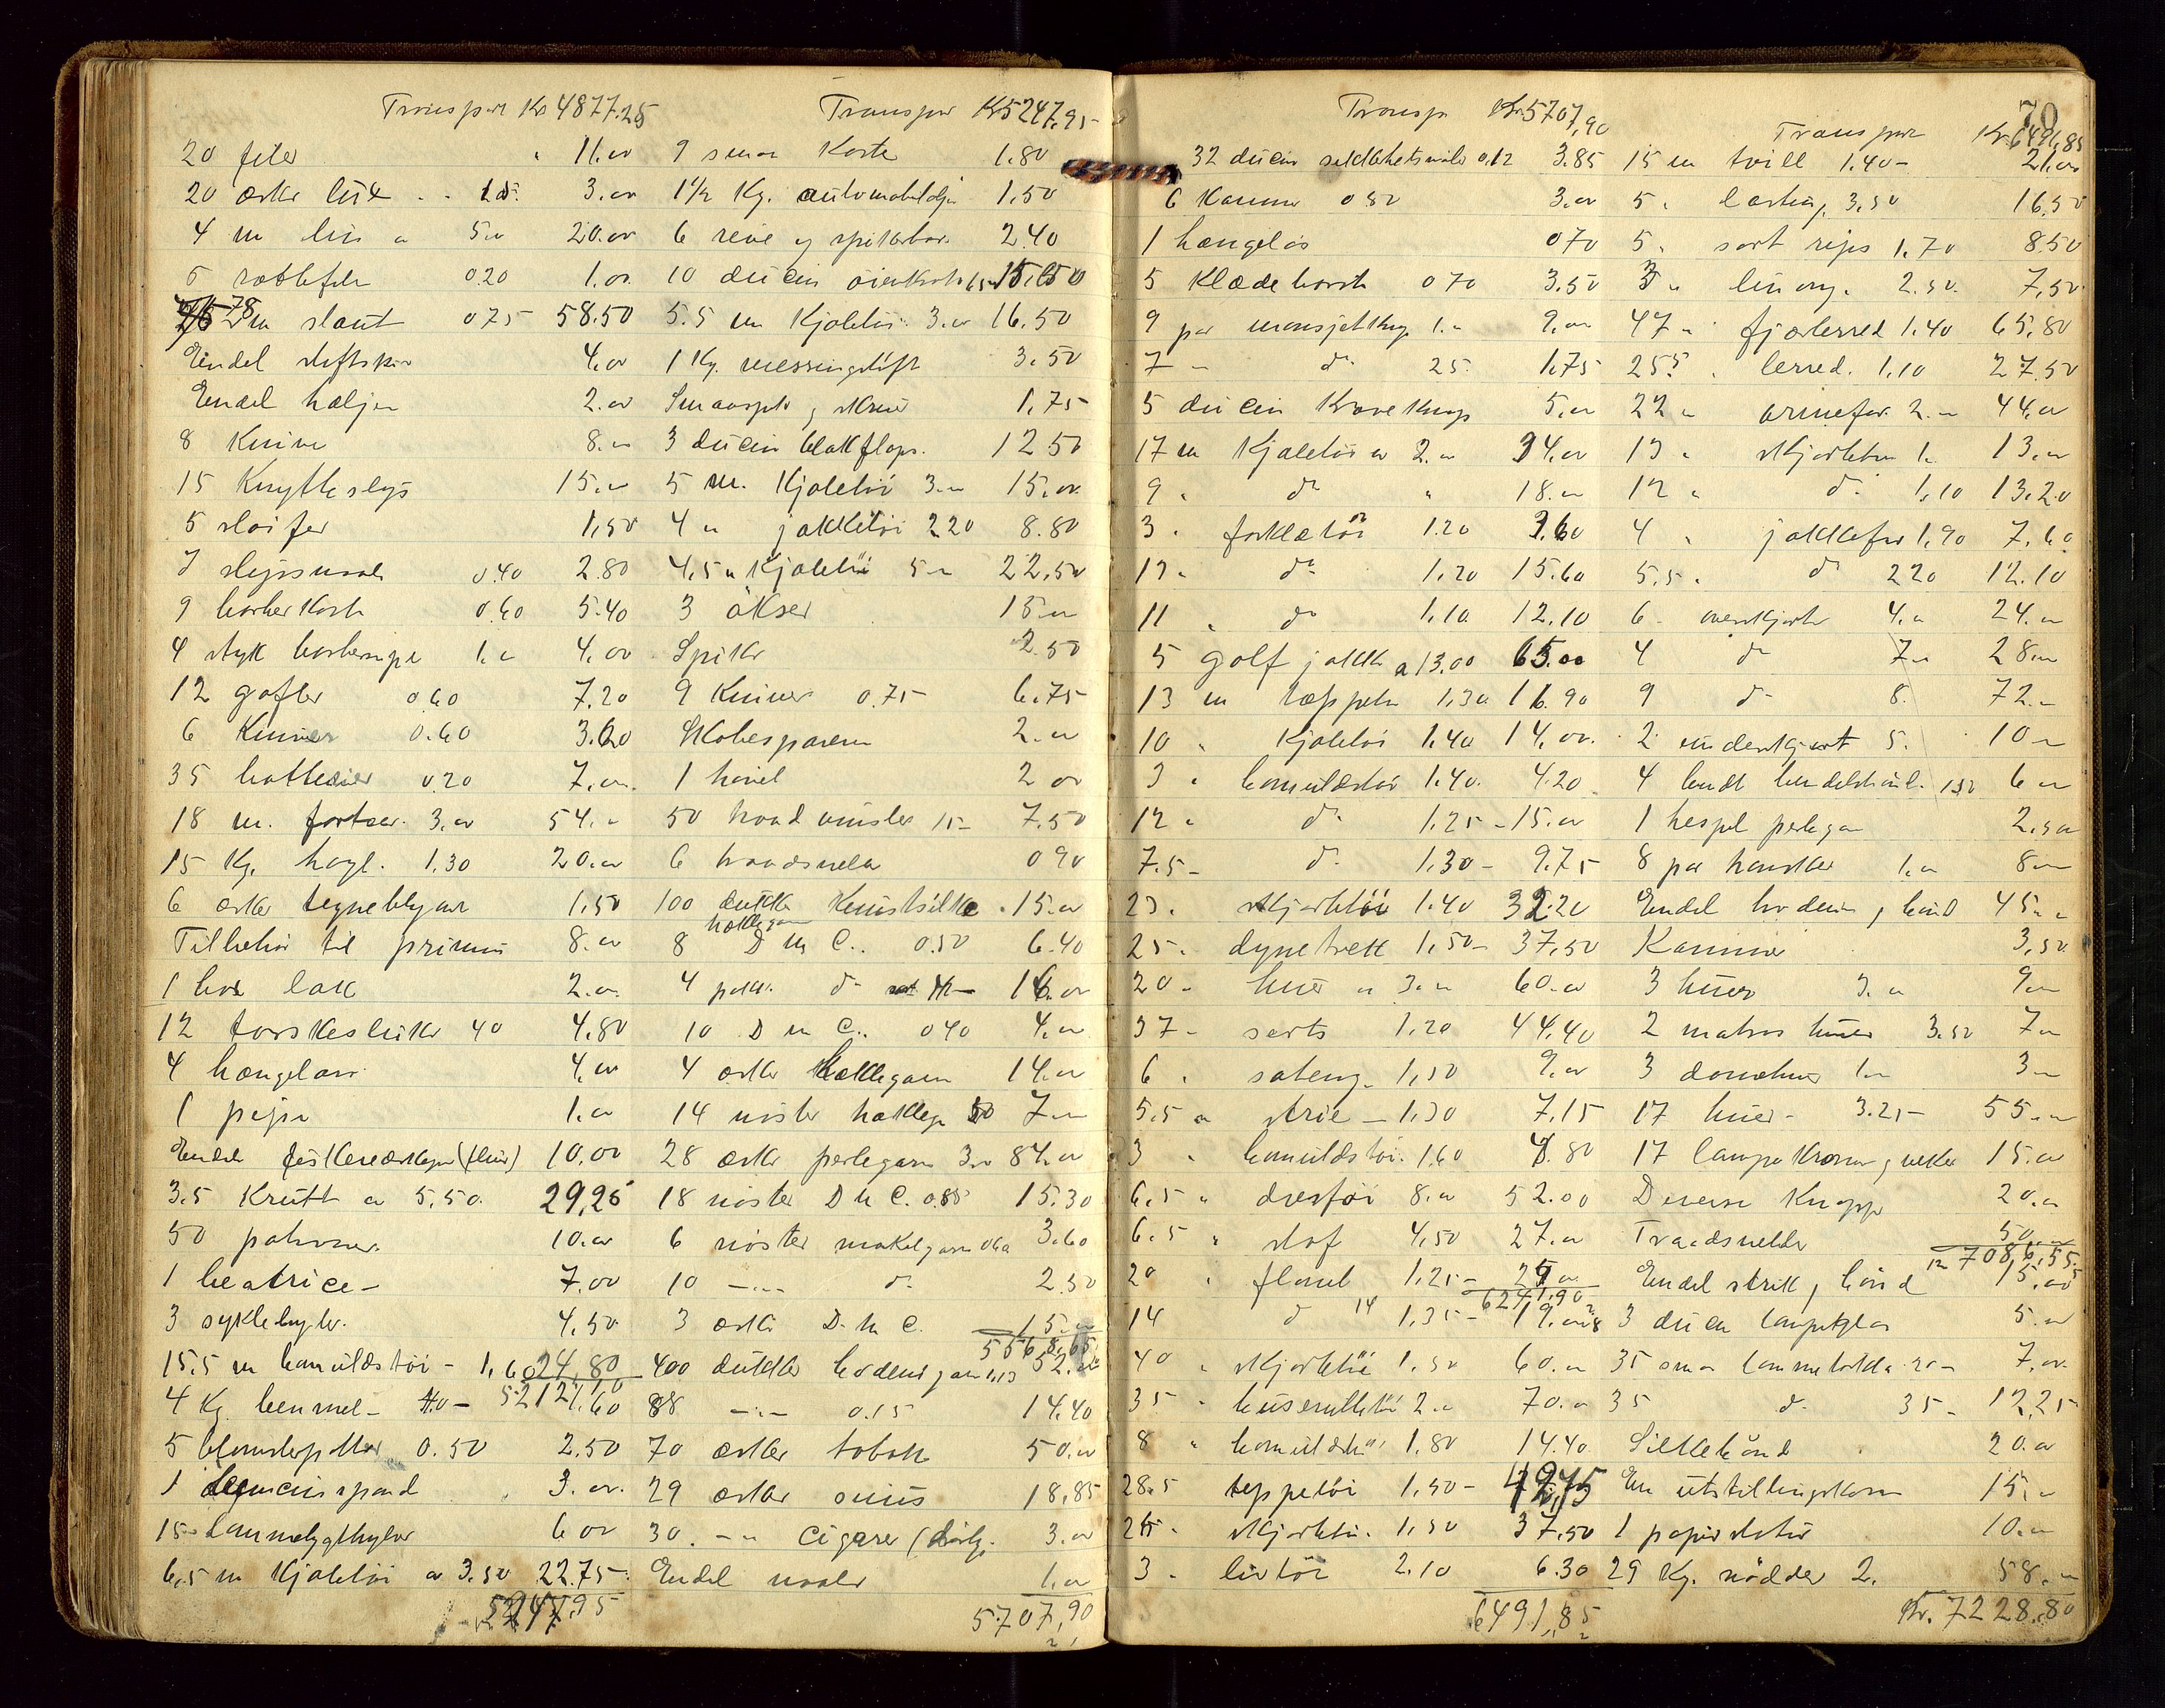 Transport Kr 4877.25
20 filer 11.00
20 esker lux 15 3.00
4 m lin a 5.00 20.00
5 rottefeller 0.20 1.00
78 m slant 0.75 58.50
Endel stiftskr 4.00
Endel hæljer 2.00
8 Knive 8.00
15 Knytteslips 15.00
5 sløifer 1,50
7 slipsnaale 0.40 2.80
9 barberkoste 0.60 5.40
4 styk barbersæpe 1.00 4.00
12 gafler 0.60 7.20
6 Kniver 0.60 3.60
35 0.20 7.00
18 m. 3.00 54.00
15 Kg. hagl. 1.30 20.00
6 esker tegneblyant 1,50
Tilbehør til primus 8.00
1 box lak 2.00
12 torskesluker 40 4.80
4 hængelaas 4.00
1 pipe 1.00
Endel 10.00
3.5 Krutt a 5.50 29,25
50 patroner 10.00
1 beatrice 7.00
3 syklebyler 4.50
15.5 m bomuldstøi 1.60 24.80
4 Kg. 40 1.60
5 blomsterpotter 0.50 2.50
1 spand 3.00
15 Lommelygthylser 6.00
6.5 m Kjoletøi a 3.50 22.75
5247.95
Transport Kr 5247,95
9 smaa Koste 1.80
1½ Kg. automobilolje 1.50
6 reive og spikerbor 2.40
10 ducin 15.00
5.5 m Kjoletøi 3.00 16.50
1 Kg. messingstift 3.50
Smaaspik og skrue 1.75
3 ducin blakflaps. 12.50
5 m. Kjoletøi 3.00 15.00
4 m jakketøi 2.20 8.80
4.5 m Kjoletøi 5.00 22.50
3 økser 15.00
Spiker 2.50
9 Kniver 0.75 6.75
Skobesparere 2.00
1 høvel 2.00
50 traadsnisler 15 7.50
6 traadsnela 0.90
100 dukker Kunstsilke 15.00
8 heklegarn D M C. 0.80 6.40
4 pakk. do 16.00
10 D M C. 0.40 4.00
4 esker Heklegarn 14.00
14 nøster heklega 50 7.00
28 esker perlegarn 3.00 84.00
18 nøster D M C. 0.85 15.30
6 nøster makelgarn 0.60 3.60
10 do 2.50
3 esker D. M C. 15.00
5568,65
400 dukker broderigarn 0.13 52.00
88 0.15 14.40
70 esker tobak 50.00
29 esker snus 18.85
30 Cigarer (daarlig. 3.00
Endel naaler 1.00
5707,90
70
Transp Kr 5707,90
32 ducin sikkerhetsnaaler 0.12 3.85
6 Kammer 0.50 3.00
1 hængelås 0.70
5 Klædebørste 0.70 3.50
9 par mansjetknap 1.00 9.00
7 do 25 1.75
5 ducin Kraveknap 5.00
17 m Kjoletøi a 2.00 34.00
9 do 18.00
3 forklætøi 1.20 3.60
13 do 1.20 15.60
11 do 1.10 12.10
5 golfjakke a 13.00 65.00
13 m tæppetøi 1.30 16.90
10 Kjoletøi 1.40 14.00
3 bomuldstøi 1.40 4.20
12 do 1.25 15.00
7.5 do 1.30 9.75
23 skjortetøi 1.40 32.20
25 dynetrekk 1.50 37.50
20 huer a 3.00 60.00
37 serts 1.20 44.40
6 sateng 1.50 9.00
5.5 m strie 1.30 7.15
3 bomuldstøi 1.60 4.80
6.5 drestøi 8.00 52.00
6.5 stof 4.50 27.00
20 flanel 1.25 25.00
6241.90
14 do 1.35 19.00
40 skjortetøi 1.50 60.00
35 buserultøi 2.00 70.00
8 bomuldstøi 1.80 14.40
28.5 teppetøi 1.50 42.75
25 skjortetøi 1.50 37.50
3 livtøi 2.10 6.30
6491,85
Transport Kr 6491,85
15 m tvill 1.40 21.00
5 lasting 3.30 16.50
5 sort rips 1.70 8.50
3 linong. 2.50 7.50
47 fjærlerred 1.40 65.80
25 lerred. 1.10 27.50
22 ermefor 2.00 44.00
13 skjortetøi 1. 13.00
12 do 1.10 13.20
4 jakkefor 1.90 7.60
5.5 do 2.20 12.10
6 overskjorter 4.00 24.00
4 do 7.00 28.00
9 do 8. 72.00
2 underskjort 5. 10.00
4 bundt 1.50 6.00
1 hespel perlegarn 2.50
8 par hansker 1.00 8.00
Endel broderi, bånd 45.00
Kammer 3.50
3 huer 3.00 9.00
2 matros huer 3.50 7.00
3 damehuer 1.00 3.00
17 huer 3.25 55.00
17 lampekroner, veker 15.00
Diverse Knapper 20.00
Traadsneller 50.00
7086,55
Endel strik, bånd 15.00
3 ducin lampeglas 5.00
35 smaa lommetørklæ 20 7.00
35 do 35 12.25
Silkebånd 20.00
En utstillingskasse 15.00
1 papirstativ 10.00
29 Kg. nødder 2. 58.00
Kr. 7228.80